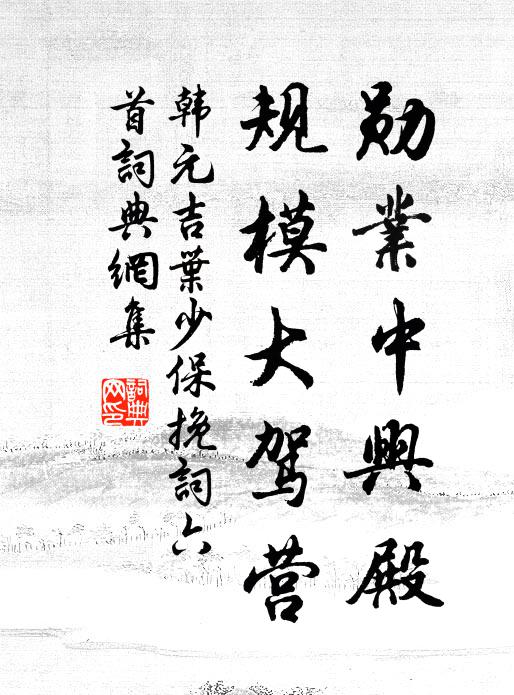 勋業中興殿
规模大驾营
韩元吉葉少保挽詞六
首詞典網集
詞典
网印